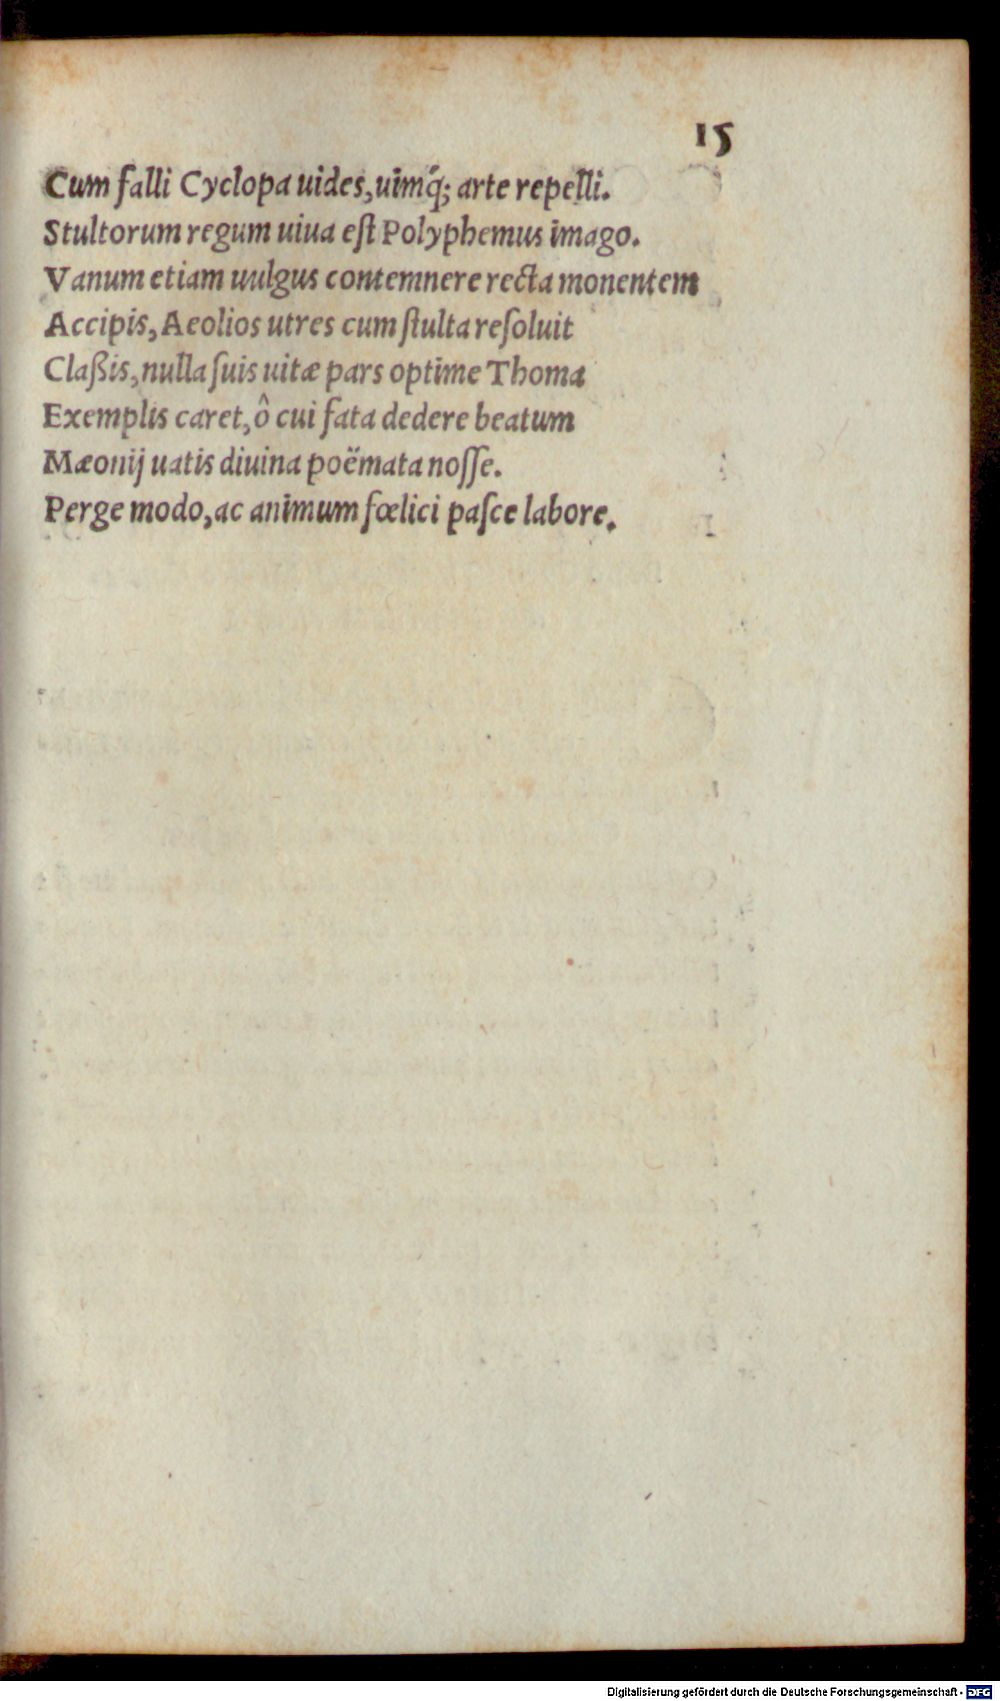 15
Cum falli Cyclopa uides, uimq́; arte repelli.
Stultorum regum uiua eſt Polyphemus imago.
Vanum etiam uulgus contemnere recta monentem
Accipis, Aeolios utres cum ſtulta reſoluit
Claßis, nulla ſuis uitæ pars optime Thoma
Exemplis caret, ô cui fata dedere beatum
Mæonij uatis diuina poëmata noſſe.
Perge modo, ac animum fœlici paſce labore.
Digitalisierung gefördert durch die Deutsche Forschungsgemeinschaft - DFG